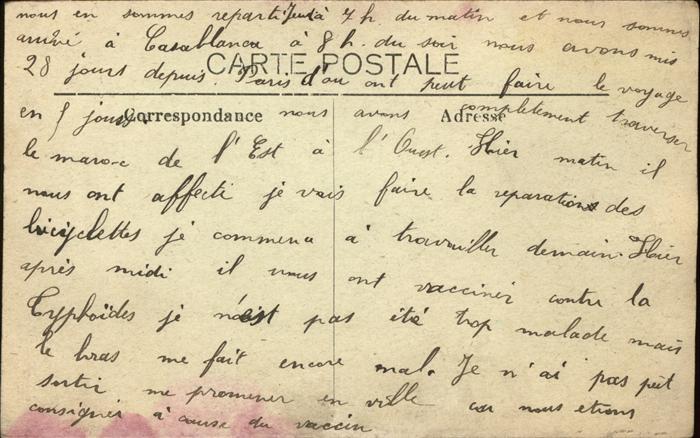 nous en sommes reparti Jeudi à 4 h. du matin et nous sommes
arrivé à Casablanca à 8 h. du soir nous avons mis
CARTE POSTALE
28 jours depuis Paris d'ou ont peut faire le voyage
Correspondance Adresse
en 5 jours. nous avons completement traverser
le maroc de l'Est à l'Ouest. Hier matin il
nous ont affecté je vais faire la reparation des
bicyclettes je commence à travailler demain. Hier
après midi il nous ont vacciner contre la
Typhoïdes je n'est pas été trop malade mais
le bras me fait encore mal. Je n'ai pas peut
sortir me promener en ville car nous etions
consigner à cause du vaccin